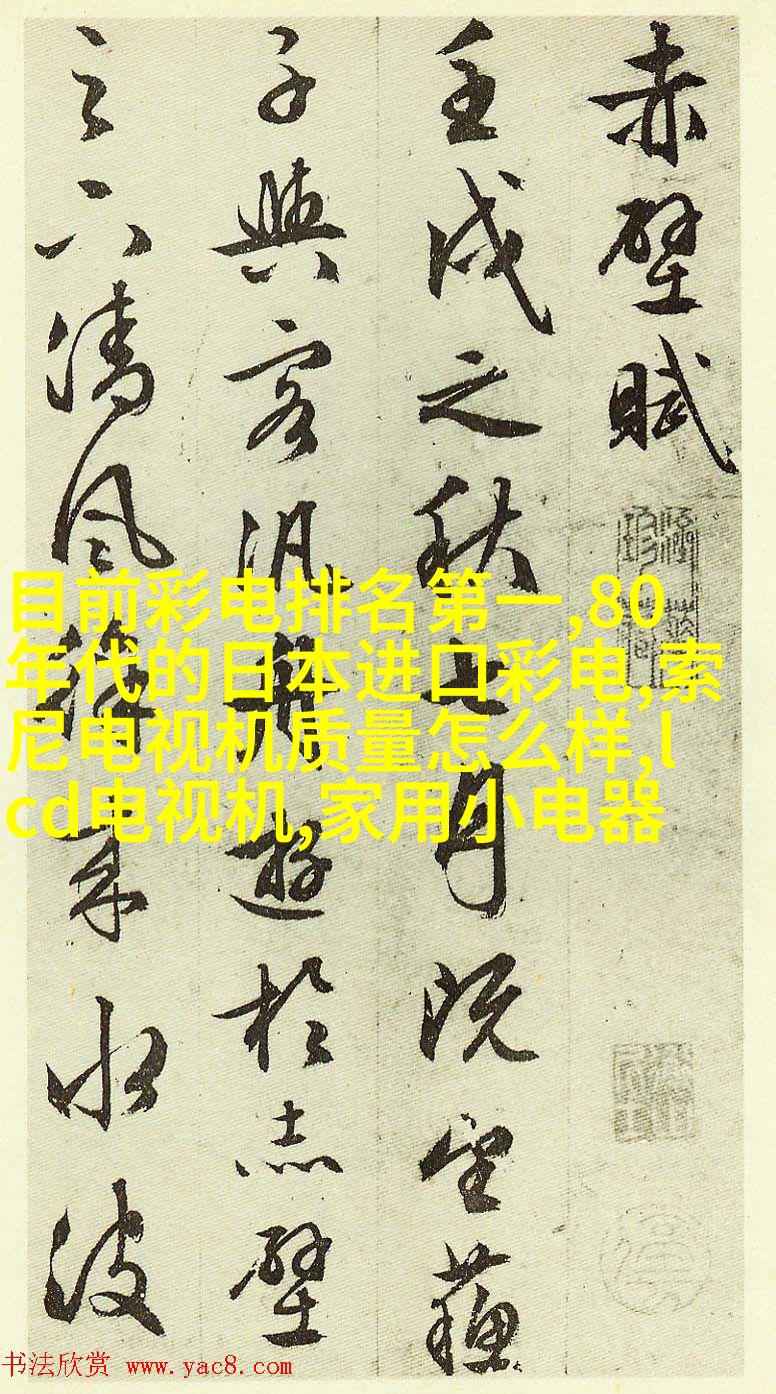 赤壁賦
壬戌之秋七月既望蘇
子與客汎舟遊於赤壁
之下清風徐來水波
目前彩电排名第一,80
年代的日本进口彩电,索
尼电视机质量怎么样,l
cd电视机,家用小电器
书法欣赏 www.yac8.com